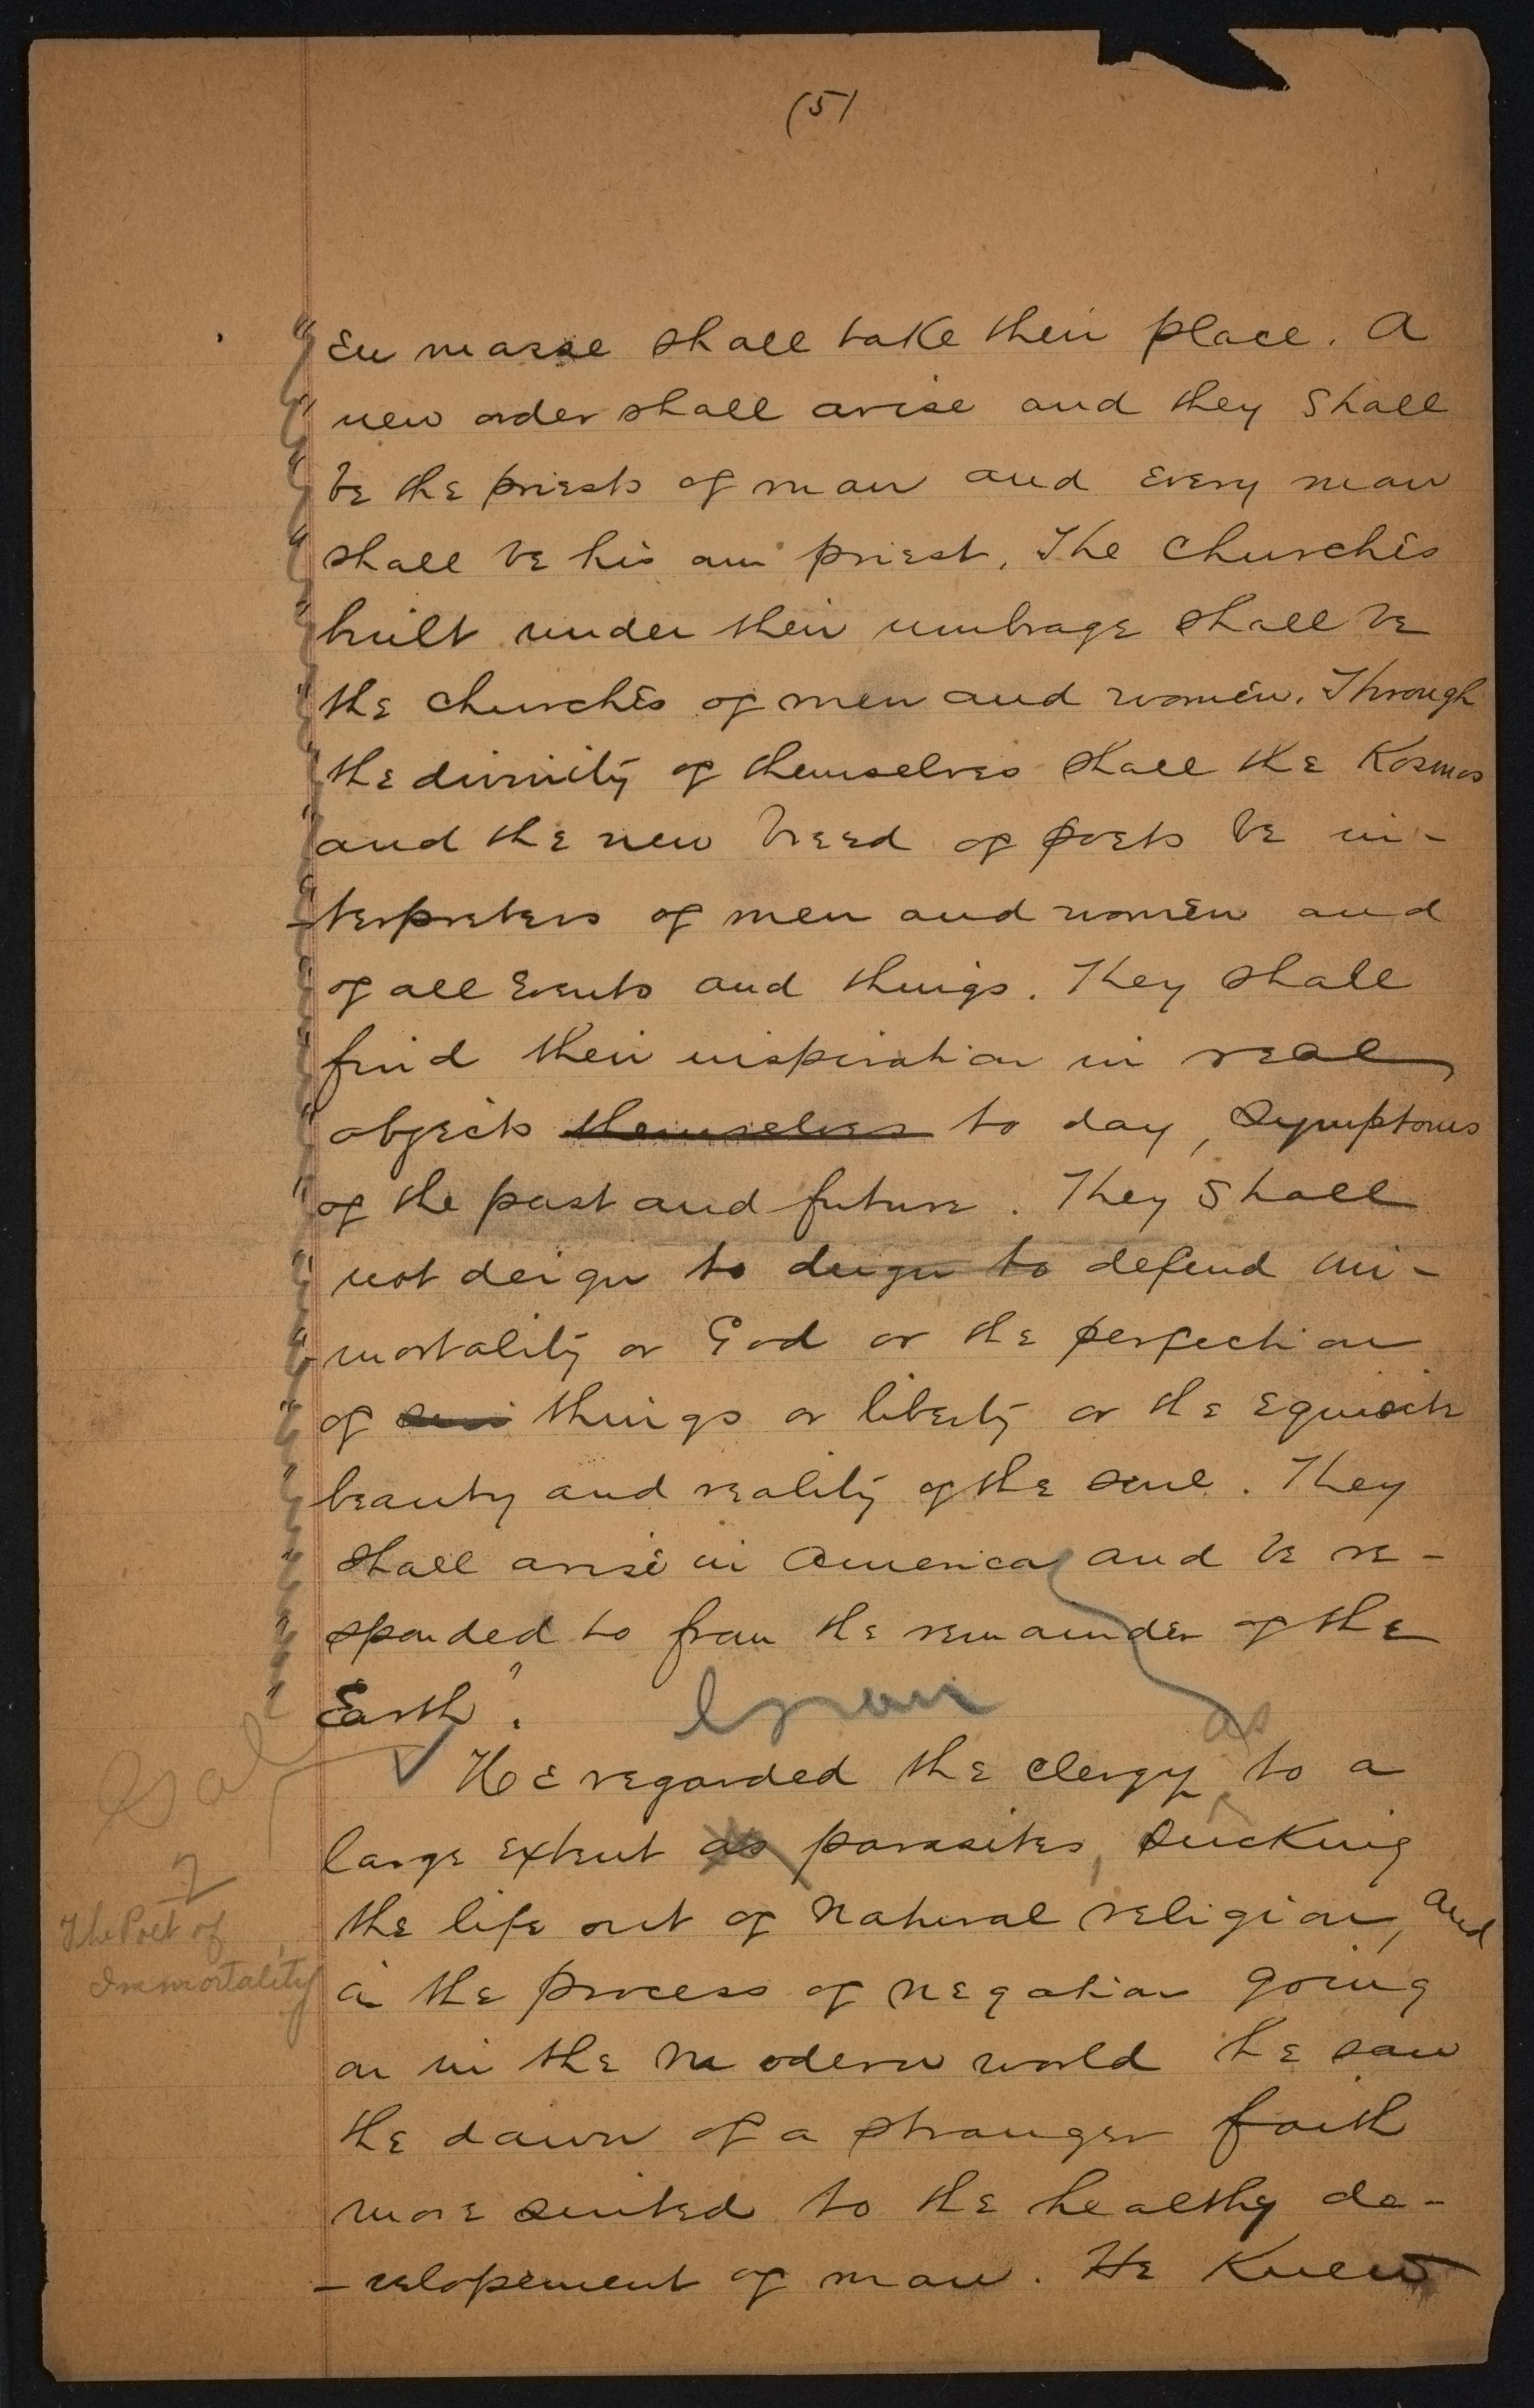 (5)
" En masse shall take their place. A
" new order shall arise and they shall
" be the priests of man and every man
" shall be his own priest. The churches
" built under their umbrage shall be
" the churches of men and women. Through
" the divinity of themselves shall the Kosmos
" and the new breed of poets be in-
" -terpreters of men and women and
" of all events and things. They shall
" find their inspiration in real
" objects themselves to day, symptoms
" of the past and future. They shall
" not deign to deign to defend im-
" -mortality or God or the perfection
" of things or liberty or the exquisite
" beauty and reality of the soul. They
" shall arise in America and be re-
" sponded to from the remainder of the
" Earth".
as
He regarded the clergy to a
large extent as parasites, sucking
the life out of natural religion, and
in the process of negation going
on in the modern world he saw
the dawn of a stronger faith
more suited to the healthy de-
-velopement of man. He Knew
Gal
7
The Poet of
Immortality